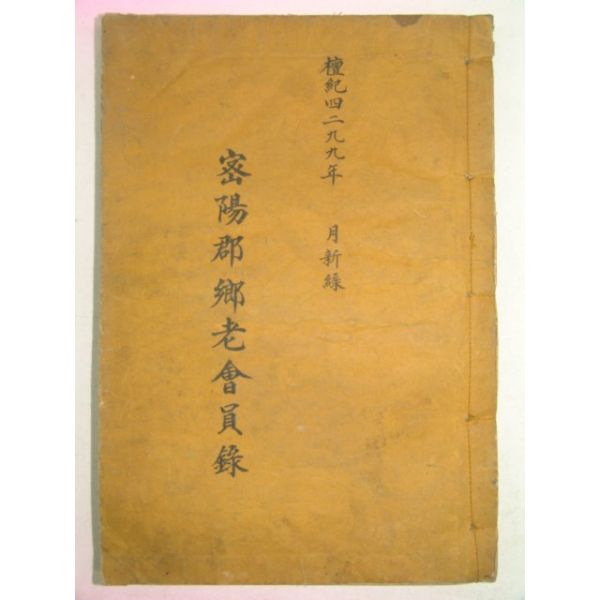 檀紀四二九九年 月新繰
密陽郡鄉老會員錄